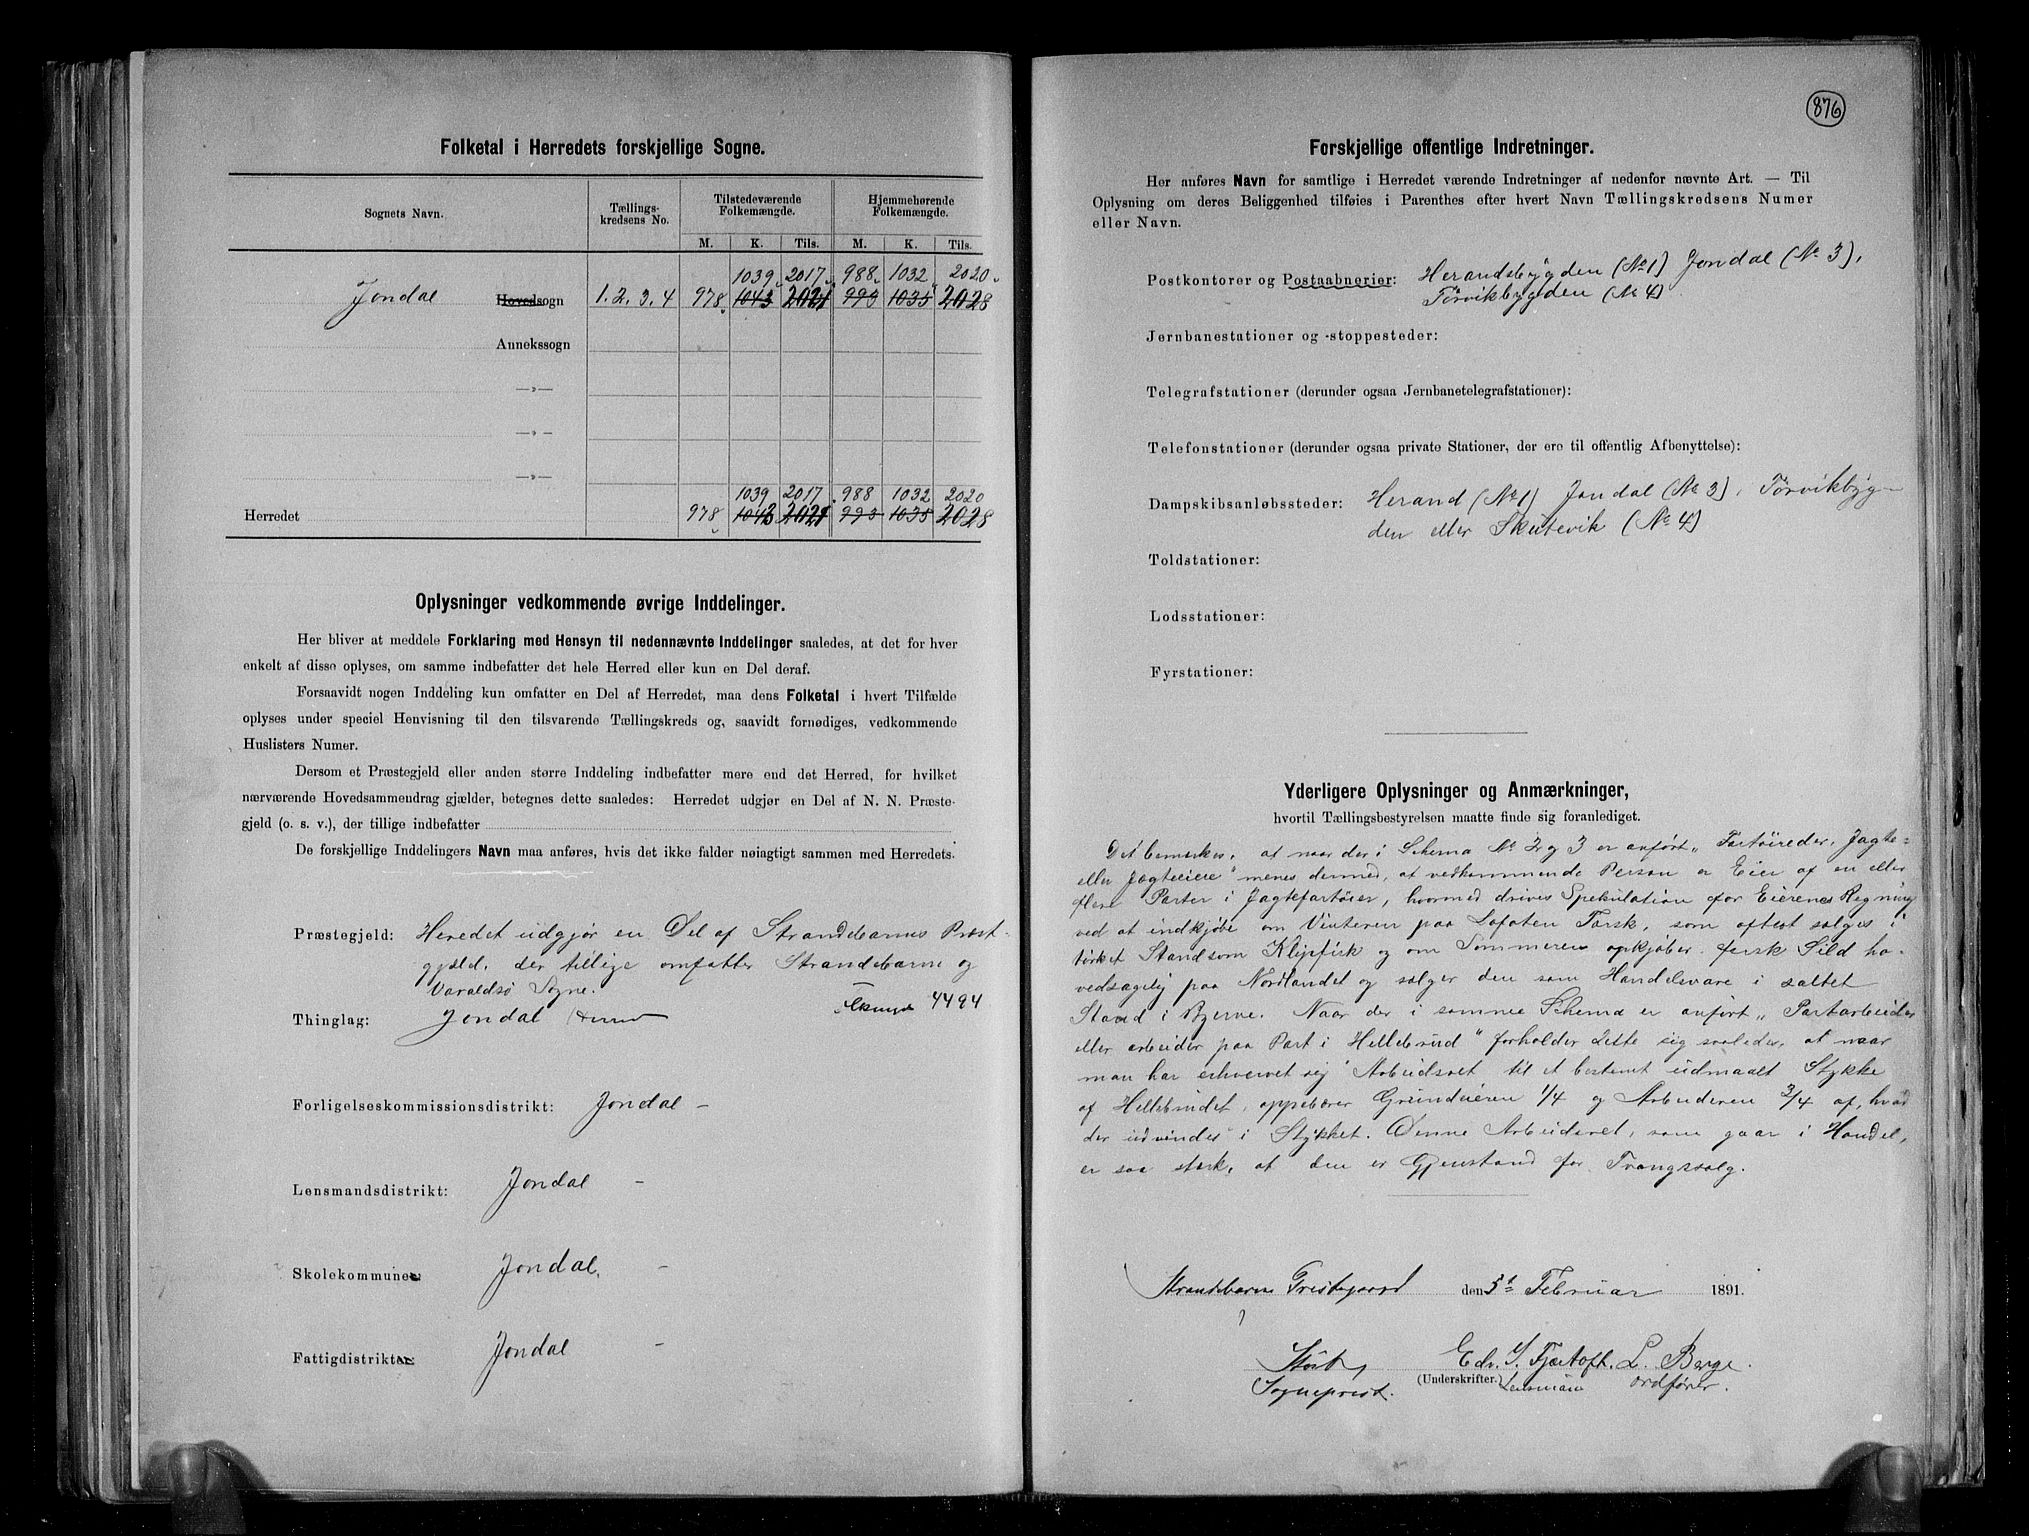 Folketal i Herredets forskjellige Sogne.
Sognets Navn.
Tællings-
kredsens No.
Tilstedeværende
Folkemængde.
Hjemmehørende
Folkemængde.
M. K. Tils. M. K. Tils.
1039 2017 988 1032 2020
Jondal Hovedsogn 1. 2. 3. 4 978 1043 2021 993 1035 2028
Annekssogn
—»—
—»—
—»—
1039 2017 988 1032 2020
Herredet 978 1043 2021 993 1035 2028
Oplysninger vedkommende øvrige Inddelinger.
Her bliver at meddele Forklaring med Hensyn til nedennævnte Inddelinger saaledes, at det for hver
enkelt af disse oplyses, om samme indbefatter det hele Herred eller kun en Del deraf.
Forsaavidt nogen Inddeling kun omfatter en Del af Herredet, maa dens Folketal i hvert Tilfælde
oplyses under speciel Henvisning til den tilsvarende Tællingskreds og, saavidt fornødiges, vedkommende
Huslisters Numer.
Dersom et Præstegjeld eller anden større Inddeling indbefatter mere end det Herred, for hvilket
nærværende Hovedsammendrag gjælder, betegnes dette saaledes: Herredet udgjør en Del af N. N. Præste-
gjeld (o. s. v.), der tillige indbefatter
De forskjellige Inddelingers Navn maa anføres, hvis det ikke falder nøiagtigt sammen med Herredets.
Præstegjeld: Heredet udgjør en Del af Strandebarms Præst-
gjeld, der tillige omfatter Strandebarm og
Varaldsö Sogne.
4494
Thinglag: Jondal
Forligelseskommissionsdistrikt: Jondal –
Lensmandsdistrikt: Jondal –
Skolekommuner: Jondal. –
Fattigdistrikter: Jondal –
876
Forskjellige offentlige Indretninger.
Her anføres Navn for samtlige i Herredet værende Indretninger af nedenfor nævnte Art. — Til
Oplysning om deres Beliggenhed tilføies i Parenthes efter hvert Navn Tællingskredsens Numer
eller Navn.
Postkontorer og Postaabnerier: Herandsbygden (No 1) Jondal (No 3),
Törvikbygden (No 4)
Jernbanestationer og -stoppesteder:
Telegrafstationer (derunder ogsaa Jernbanetelegrafstationer):
Telefonstationer (derunder ogsaa private Stationer, der ere til offentlig Afbenyttelse):
Dampskibsanløbssteder: Herand (No 1) Jondal (No 3), Törvikbyg-
den eller Skutevik (No 4)
Toldstationer:
Lodsstationer:
Fyrstationer:
Yderligere Oplysninger og Anmærkninger,
hvortil Tællingsbestyrelsen maatte finde sig foranlediget.
Det bemerkes, at naar der i Schema No 2 og 3 er anført „Fartöireder, Jagte-
eller Jagteeiere" menes dermed, at vedkommende Person er Eier af en eller
flere Parter i Jagtefartöier, hvormed drives Spekulation for Eierenes Regning
ved at indkjöbe om Vinteren paa Lofoten Torsk, som oftest sælges i
törket Stand som Klipfisk og om Sommeren opkjöber fersk Sild ho-
vedsagelig paa Nordlandet og sælger den som Handelsvare i saltet
Stand i Bergen. Naar der i samme Schema er anført „Partarbeider
eller arbeider paa Part i Hellebrud" forholder dette sig saaledes, at naar
man har erhvervet sig Arbeidsret til et bestemt udmaalt Stykke
af Hellebrudet, oppebærer Grundeieren 1/4 og Arbeideren 3/4 af, hvad
der udvindes i Stykket. Denne Arbeidsret, som gaar i Handel,
er saa stærk, at den er Gjenstand for Tvangssalg.
Strandebarms Prestegaard den 5te Februar 1891.
Edv. S. Fjørtoft. L. Berge.
(Underskrifter.)
Sogneprest. Lensmann Ordfører.